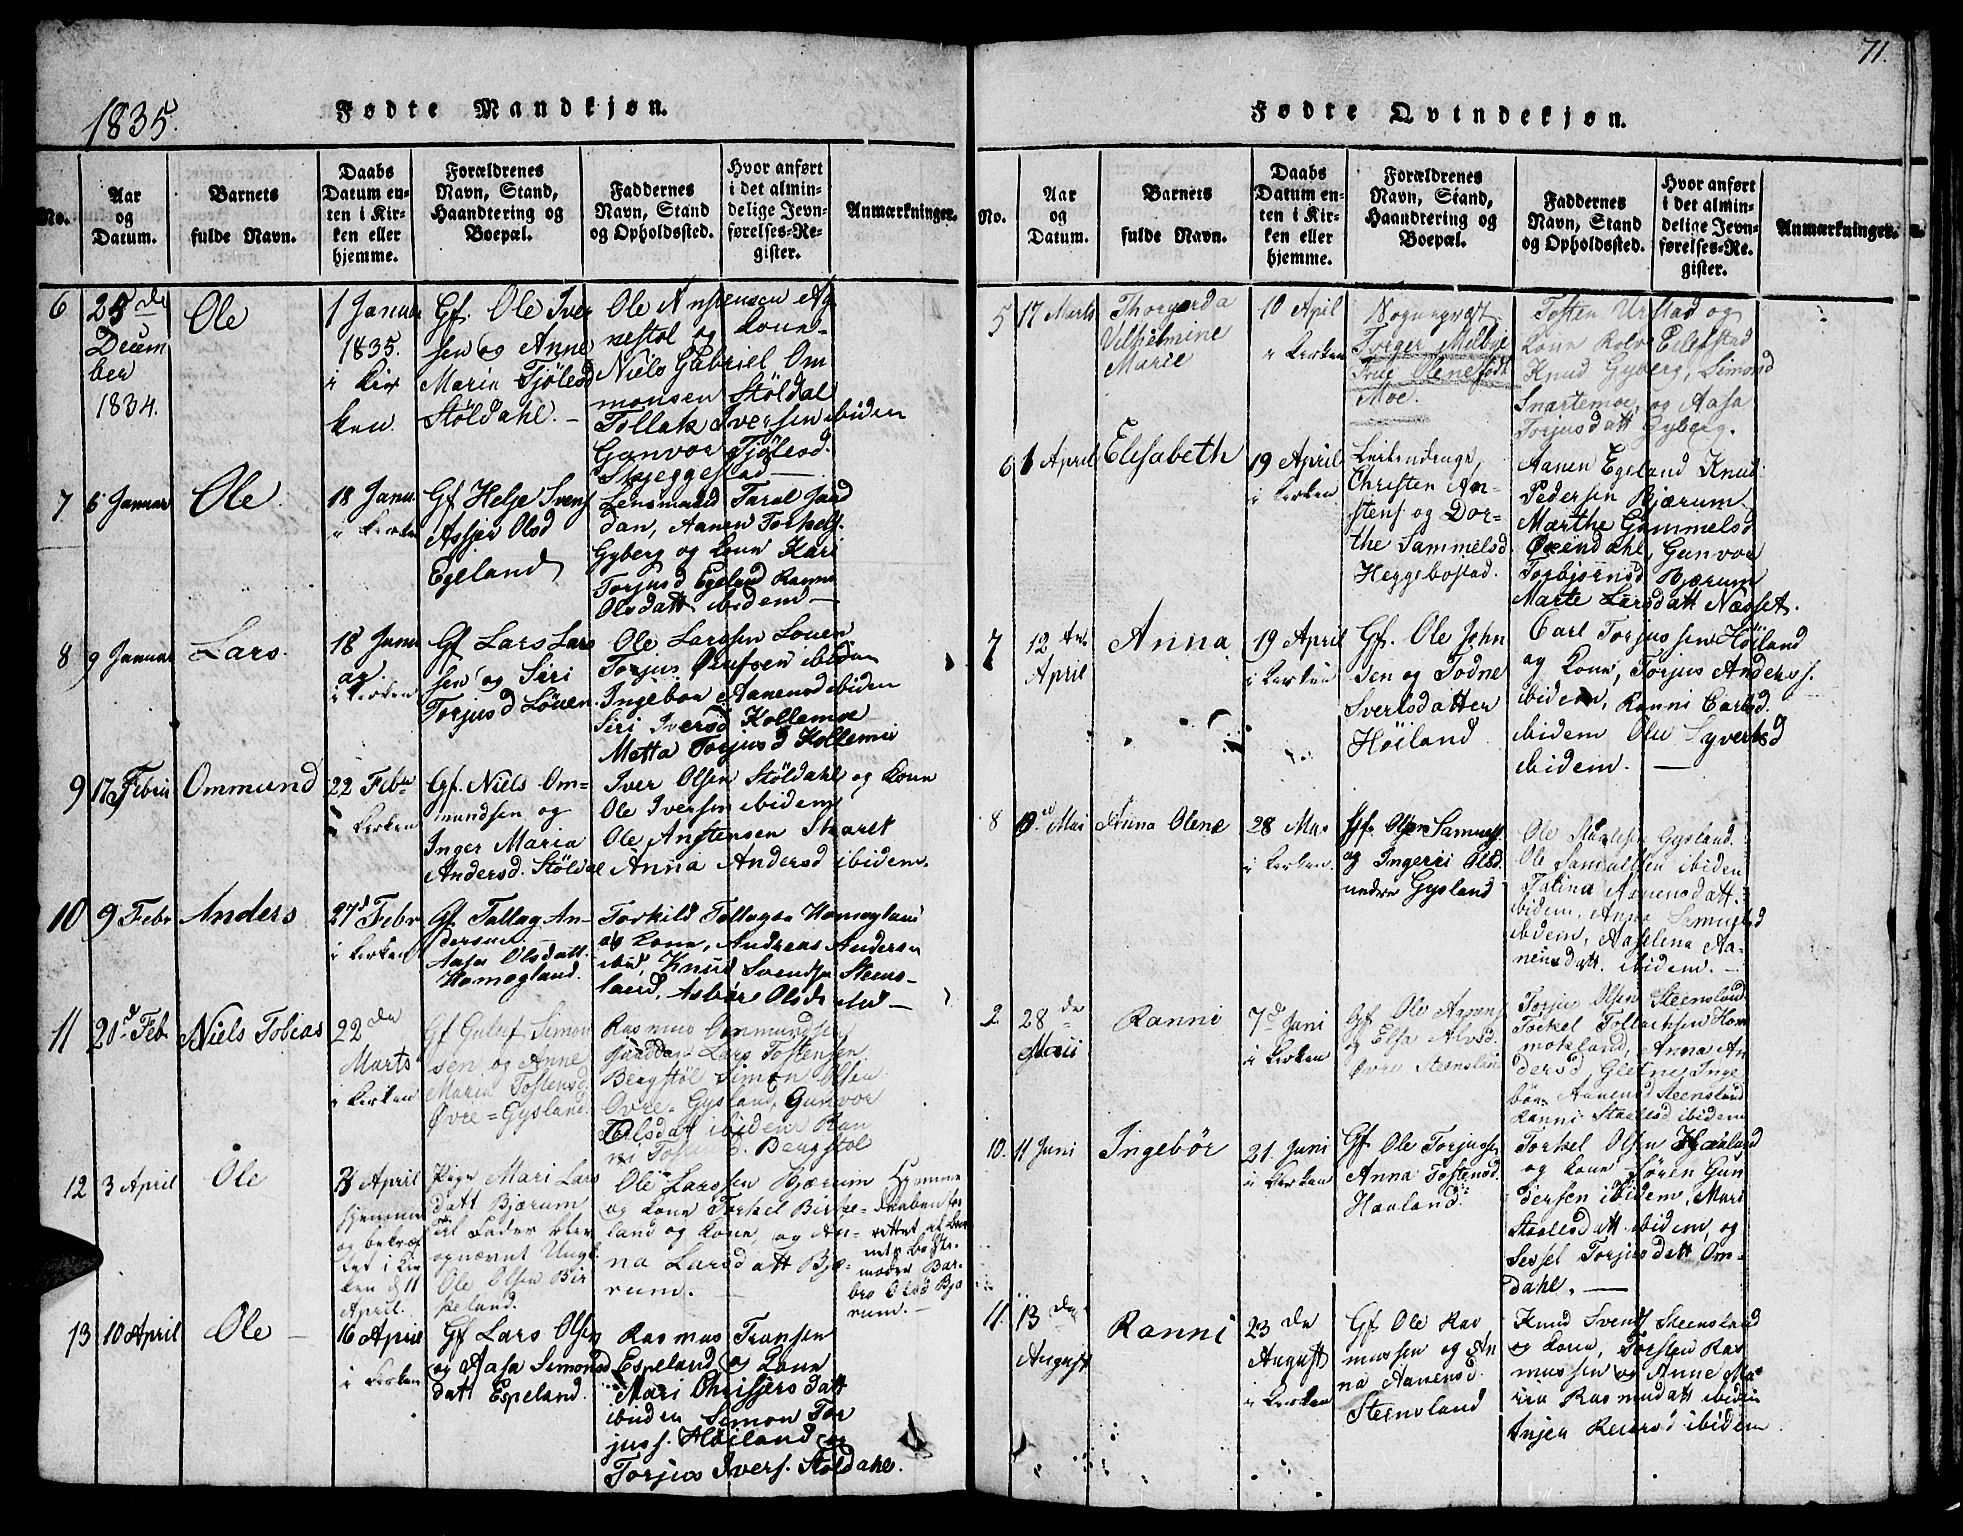 71.
1835.
Fødte Mandkjøn.
No.
Aar
og
Datum.
Barnets
fulde Navn.
Daabs
Datum en-
ten i Kir-
ken eller
hjemme.
Forældrenes
Navn, Stand,
Haandtering og
Boepæl.
Faddernes
Navn, Stand
og Opholdssted.
Hvor anført
i det almin-
delige Jevn-
førelses-Re-
gister.
Anmærkninger.
6
25de
Decem
ber
1834.
Ole
1 Januar
1835.
i Kir
ken.
Gf. Ole Iver
sen og Anne
Maria Tjölesd
Stöldahl.
Ole Anstensen
nestol og Kone
Niels Gabriel Om
monsen Stöldal
Tollak Iversen ibiden
Gunvor Tjölesd.
Skjeggestad
7
6 Januar
Ole.
18 Janu.
i Kirken
Gf Helje Svens
Assjer Olsd
Egeland
Lensmand Taral Jaad
dan, Aanen Torkels.
Gyberg og Kone Kari
Torjusd Egeland Ranne
Olsdatt ibidem
8
9 Januar
Lars.
18 Janu
ar.
i Kirken
Gf Lars Lars
sen og Siri
Torjusd Löuen
Ole Larssen Louen
Torjus Olufsen ibiden
Ingebor Aanensd ibiden
Siri Iversd Kollemoe
Metta Torjusd Kollemoe
9
17 Febru
Ommund
22 Febr
i Kirken
Gf. Niels Om=
mundsen og
Inger Maria
Andersd. Stöldal
Iver Olsen Stöldahl og Kone
Ole Iversen ibidem
Ole Anstensen Skaret
Anna Andersd ibidem.
10
9 Febr
Anders
27d Febr
i Kirken
Gf Tallag An-
dersen
Aasa Olsdatt.
Homegland.
Torkild Tollagsen Homegland
og Kone, Andreas Andersen
ibid, Knud Svendsen Steens-
land, Asbör Olsdr ibid
11
20d Feb
Niels Tobias
22de
Marts
i Kirken
Gf Guluf Simon
sen og Anne
Maria Tostensd
Øvre=Gysland.
Rasmus Ommundsen
Lars Tostensen
Bergstöl Simon Olsen
Øvre=Gysland, Gunvor
Olsdat ibidem Ran
ni Tostensd. Bergstöl
12
3 April
Ole
3 April
hjemme
og bekræf
tet i Kir
ken d 11
April.
Pige Mari Lars
datt Bjærum
Til Fader blev
opnævnt Ungk
Ole Olsen Bir
keland.
Ole Larssen Bjærum
og Kone Torkel Birke=
land og Kone, og An-
na Larsdatt Bjæ-
rum.
Hjemme
Daaben for
rettet af Bar
nets Beste-
moder Bar-
bro Olsd Bjæ
rum.
13
10 April
Ole
16 April
i Kirken
Gf Lars Olsen
og Aasa Simons
datt Espeland.
Rasmus Transen
Espeland og Kone
Mari Chrissjersdatt
ibiden Simon Tor
juss. Höiland og
Torjus Ivers. Stöldahl.
Fødte Qvindekjøn.
No.
Aar
og
Datum.
Barnets
fulde Navn.
Daabs
Datum en-
ten i Kir-
ken eller
hjemme.
Forældrenes
Navn, Stand,
Haandtering og
Boepæl.
Faddernes
Navn, Stand
og Opholdssted.
Hvor anført
i det almin-
delige Jevn-
førelses-Re-
gister.
Anmærkninger.
5
17 Marts
Thorgerda
Vilhelmine
Marie
10 April
i Kirken
Sognepræst
Torger Melbye
Frue Olene født
Moe.
Tosten Urstad og
Kone Rolv Eilefstad
Knud Gyberg, Simond
Snartemoe, og Aasa
Torjusdatt Gyberg.
6
6 April
Elisabeth
19 April
i Kirken
Leilendinge,
Christen An-
stens og Dor=
the Sammelsd.
Heggebostad.
Aanen Egeland Knud
Pedersen Bjærum
Marthe Gammelsd
Øxendahl, Gunvor
Torbjörnsd Bjærum
Marte Larsdatt Næsset.
7
12te
April
Anna
19 April
i Kirken
Gf. Ole John
sen og Todne
Sverlsdatter
Höiland
Carl Torjussen Höiland
og Kone, Torjus Anderss.
ibidem, Ranni Carlsd.
ibidem Olu Syvertsd
ibidem.
8
Mai
Anna Olene
28 Mai
i Kirken.
Gf. Olsen Samuels
og Ingerri Olsd.
nedre Gysland
Ole Gysland.
Ole Samuelssen ibidem
Talina Aanensdatt.
ibidem, Anne
ibidem, Aaselina Aa-
nensdatt. ibidem.
2
28de
Maii
Ranni
7d Juni
i Kirken
Gf Ole Aanens
og Elsa Alvsd
Øvre Steensland
Torju Olsen Steensland
Torkel Tollachsen Hom
mokland, Anna An
dersd, Gletne, Inge
bör Aanensd Steensland
Ranni Staalesd ibidem
10.
11 Juni
Ingebör
21. Juni
i Kirken
Gf. Ole Torjussen
Anna Tostensd.
Haaland.
Torkel Olsen Haaland
og Kone Sören Gun
dersen ibidem, Mari
Staalesdatt ibidem, og
Sessel Torjusdatt Om-
dahl.
11.
13de
August
Ranni
23de
August
i Kirken
Gf. Ole Ras
mussen og An
na Aanensd.
Steensland
Knud Svends Steensland
og Kone, Torsten Ras
mussen og Anne Ma-
ria Rasmusdatt ibiden
Inger Reiersd ibidem